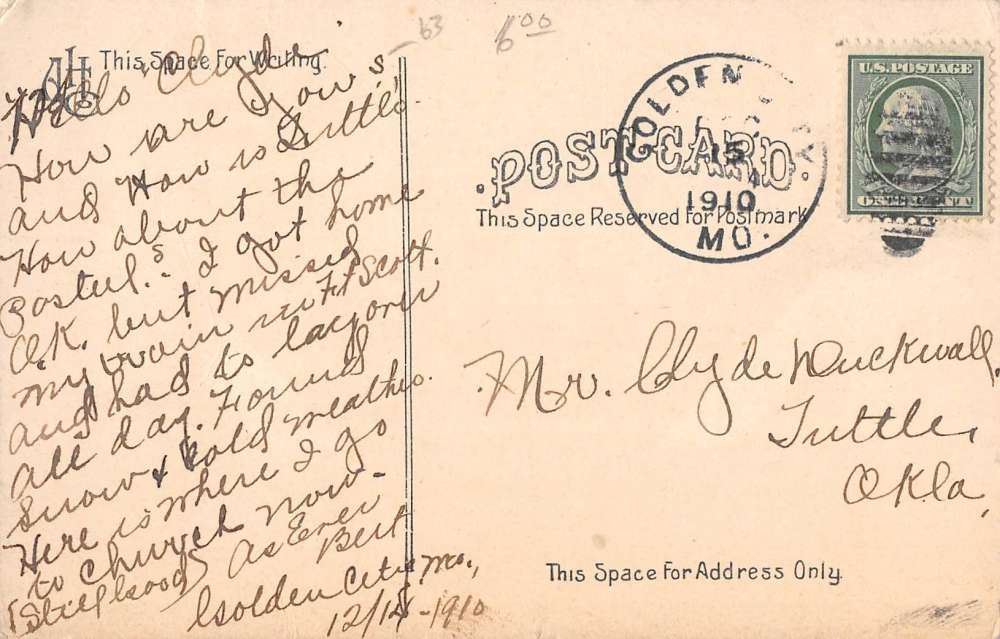 63
6.00
This Space For Writing
Hello Clyde
How are you
and How is Tuttle's
How about the
Postul.s I got home
O.K. but missed
my train in Ft Scott.
and had to layover
all day. Found
snow & cold weather.
Here is where I go
to church now-
(Still good) As Ever
Bert
Golden City Mo.,
12/14-1910
GOLDEN
15
1910
MO.
U.S. POSTAGE
ONE CENT
POST CARD.
This Space Reserved For Postmark
Mr. Clyde Duckwall,
Tuttle,
Okla,
This Space For Address Only.